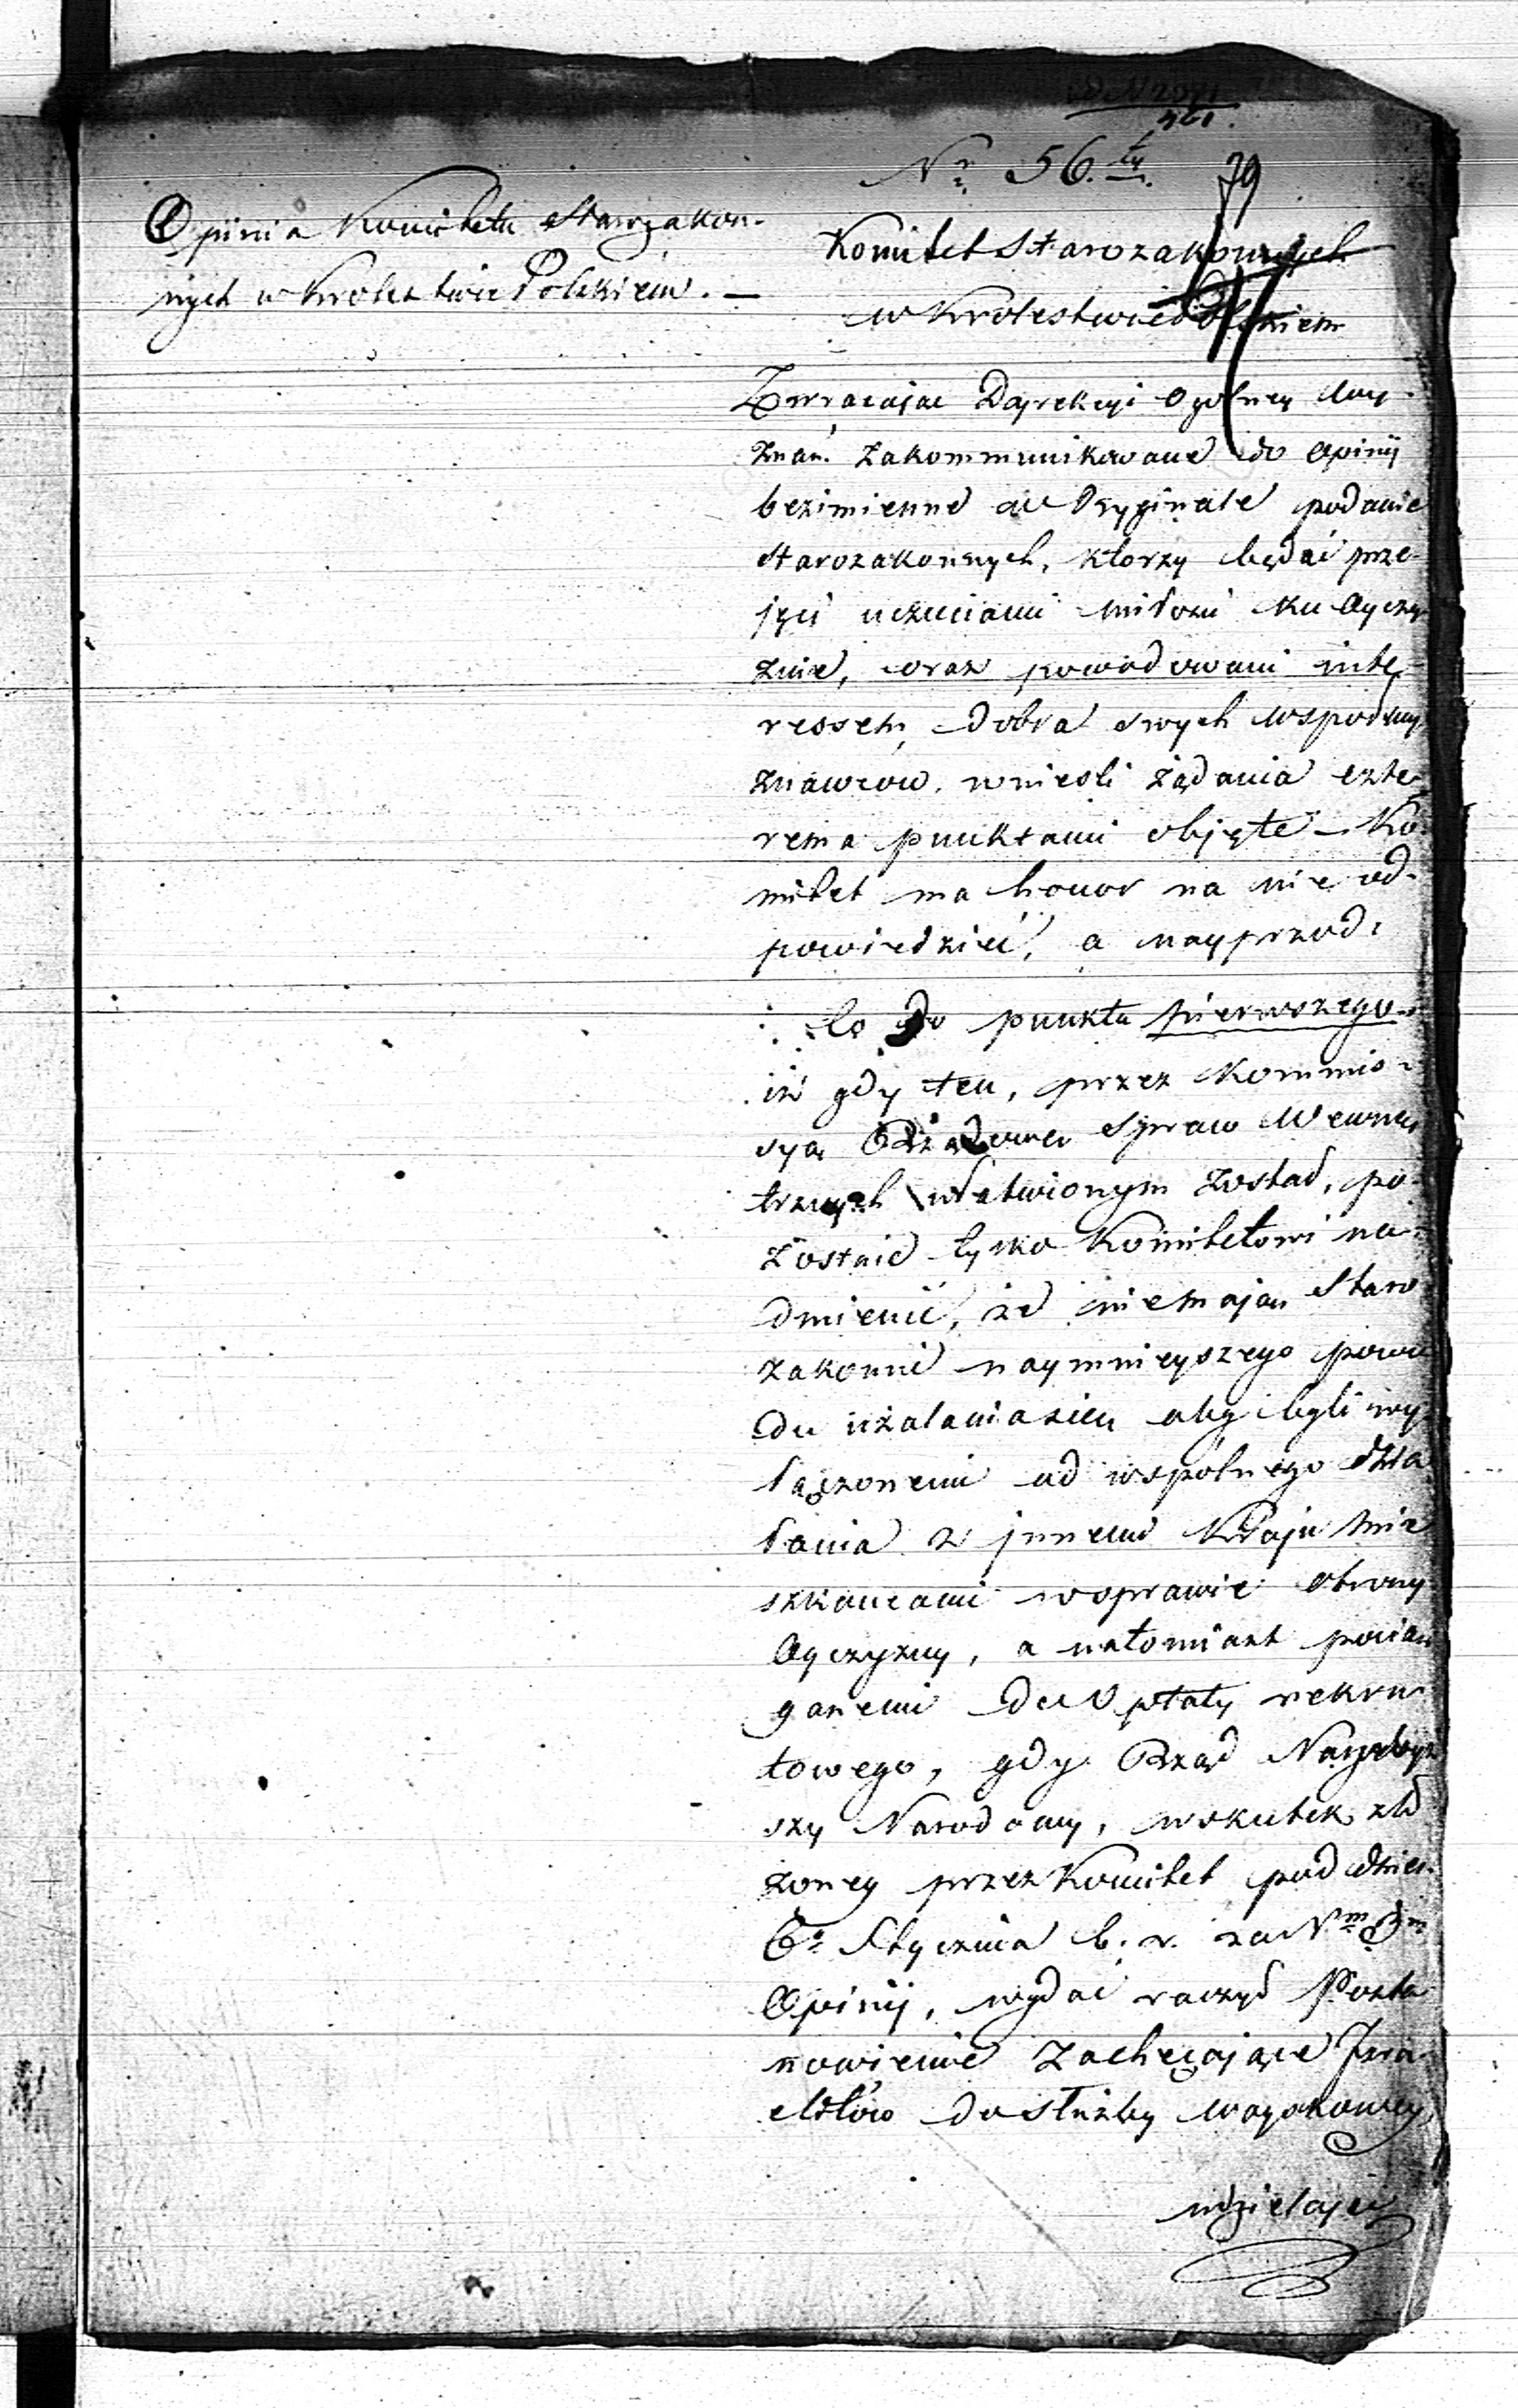 Nr 56.ty
79
Opinia Komitetu Starozakon-
nych w Krolestwie Polskiém. —
Komitet Starozakonnych
w Krolestwie Polskiem
Zwracaiąc Dyrekcyi Ogolney Wy-
znań. Zakommunikowane do Opinij
bezimienne w Oryginale podanie
Starozakonnych, ktorzy będąc prze-
jęci uczuciami miłości ku Oyczy-
znie, oraz powodowani inte-
ressem dobra swych wspołwy-
znawcow. wnieśli żądania czte-
rema punktami objęte — Ko-
mitet ma honor na nie od-
powiedzieć, a nayprzod:
Co do punktu pierwszego
iż gdy ten, przez Kommis-
syą Rządową Spraw Wewnę-
trznych ułatwionym został, po-
zostaie tylko Komitetowi na-
dmienić, że niemaią Staro-
zakonni naymnieyszego powo-
du użalania się aby byli wy-
łączonemi od wspólnego dzia-
łania z innemi Kraju mie-
szkańcami w sprawie obrony
Oyczyzny, a natomiast pocią-
ganemi do Opłaty rekru-
towego, gdy Rząd Naywyż-
szy Narodowy, wskutek zło-
żoney przez Komitet pod dniem
6. Stycznia b. r. za Nm 3m
Opinij, wydać raczył Posta-
nowienie Zachęcające Izra-
elitów do służby woyskowey
udzielaiąc